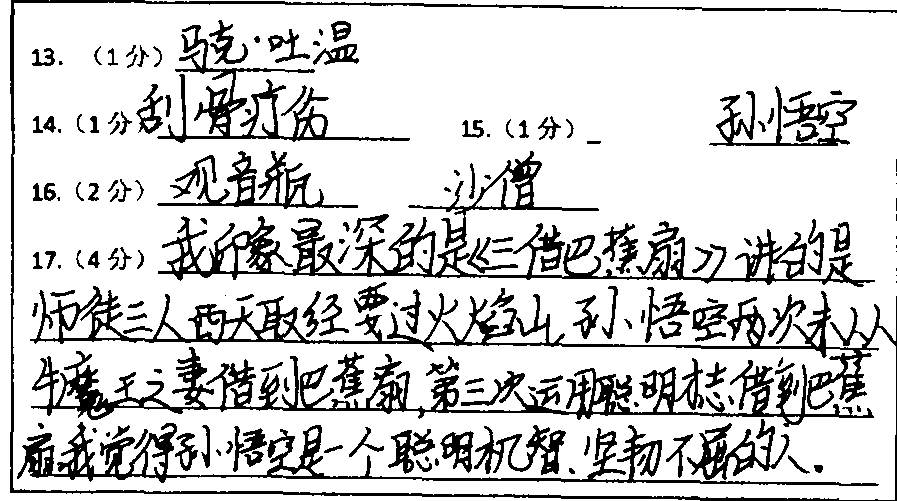 13. （1分）马克·吐温
14.（1分）刮骨疗伤 15.（1分）孙悟空
16.（2分）观音瓶 沙僧
17.（4分）我印象最深的是《三借巴蕉扇》讲的是
师徒三人西天取经要过火焰山，孙悟空两次未从
牛魔王之妻借到巴蕉扇，第三次运用聪明才志借到巴蕉
扇我觉得孙悟空是一个聪明机智、坚韧不屈的人。